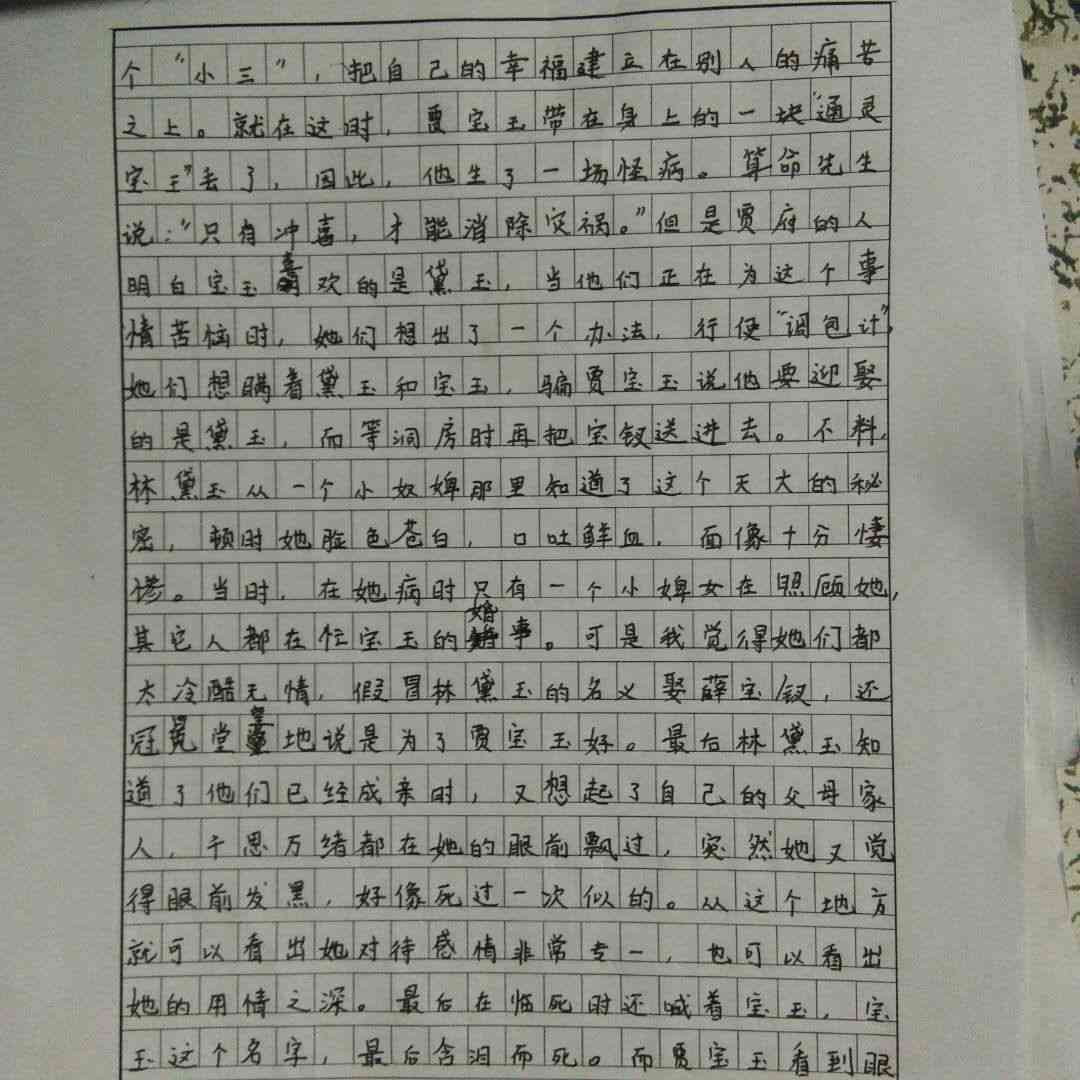 个“小三”，把自己的幸福建立在别人的痛苦
之上。就在这时，贾宝玉带在身上的一块“通灵
宝玉”丢了，因此，他生了一场怪病。算命先生
说：“只有冲喜，才能消除灾祸。”但是贾府的人
明白宝玉喜欢的是黛玉，当他们正在为这个事
情苦恼时，她们想出了一个办法，行使“调包计”，
她们想瞒着黛玉和宝玉，骗贾宝玉说他要迎娶
的是黛玉，而等洞房时再把宝钗送进去。不料，
林黛玉从一个小奴婢那里知道了这个天大的秘
密，顿时她脸色苍白，口吐鲜血，面像十分悽
惨。当时，在她病时只有一个小婢女在照顾她，
其它人都在忙宝玉的婚事。可是我觉得她们都
太冷酷无情，假冒林黛玉的名义娶薛宝钗，还
冠冕堂皇地说是为了贾宝玉好。最后林黛玉知
道了他们已经成亲时，又想起了自己的父母家
人，千思万绪都在她的眼前飘过，突然她又觉
得眼前发黑，好像死过一次似的。从这个地方
就可以看出她对待感情非常专一，也可以看出
她的用情之深。最后在临死时还喊着宝玉，宝
玉这个名字，最后含泪而死。而贾宝玉看到眼